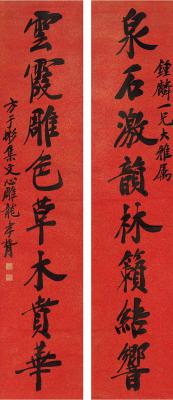 泉石激韻林籟結響
鍾麟一兄大雅属
雲霞雕色草木賁華
方于彬集文心雕龍